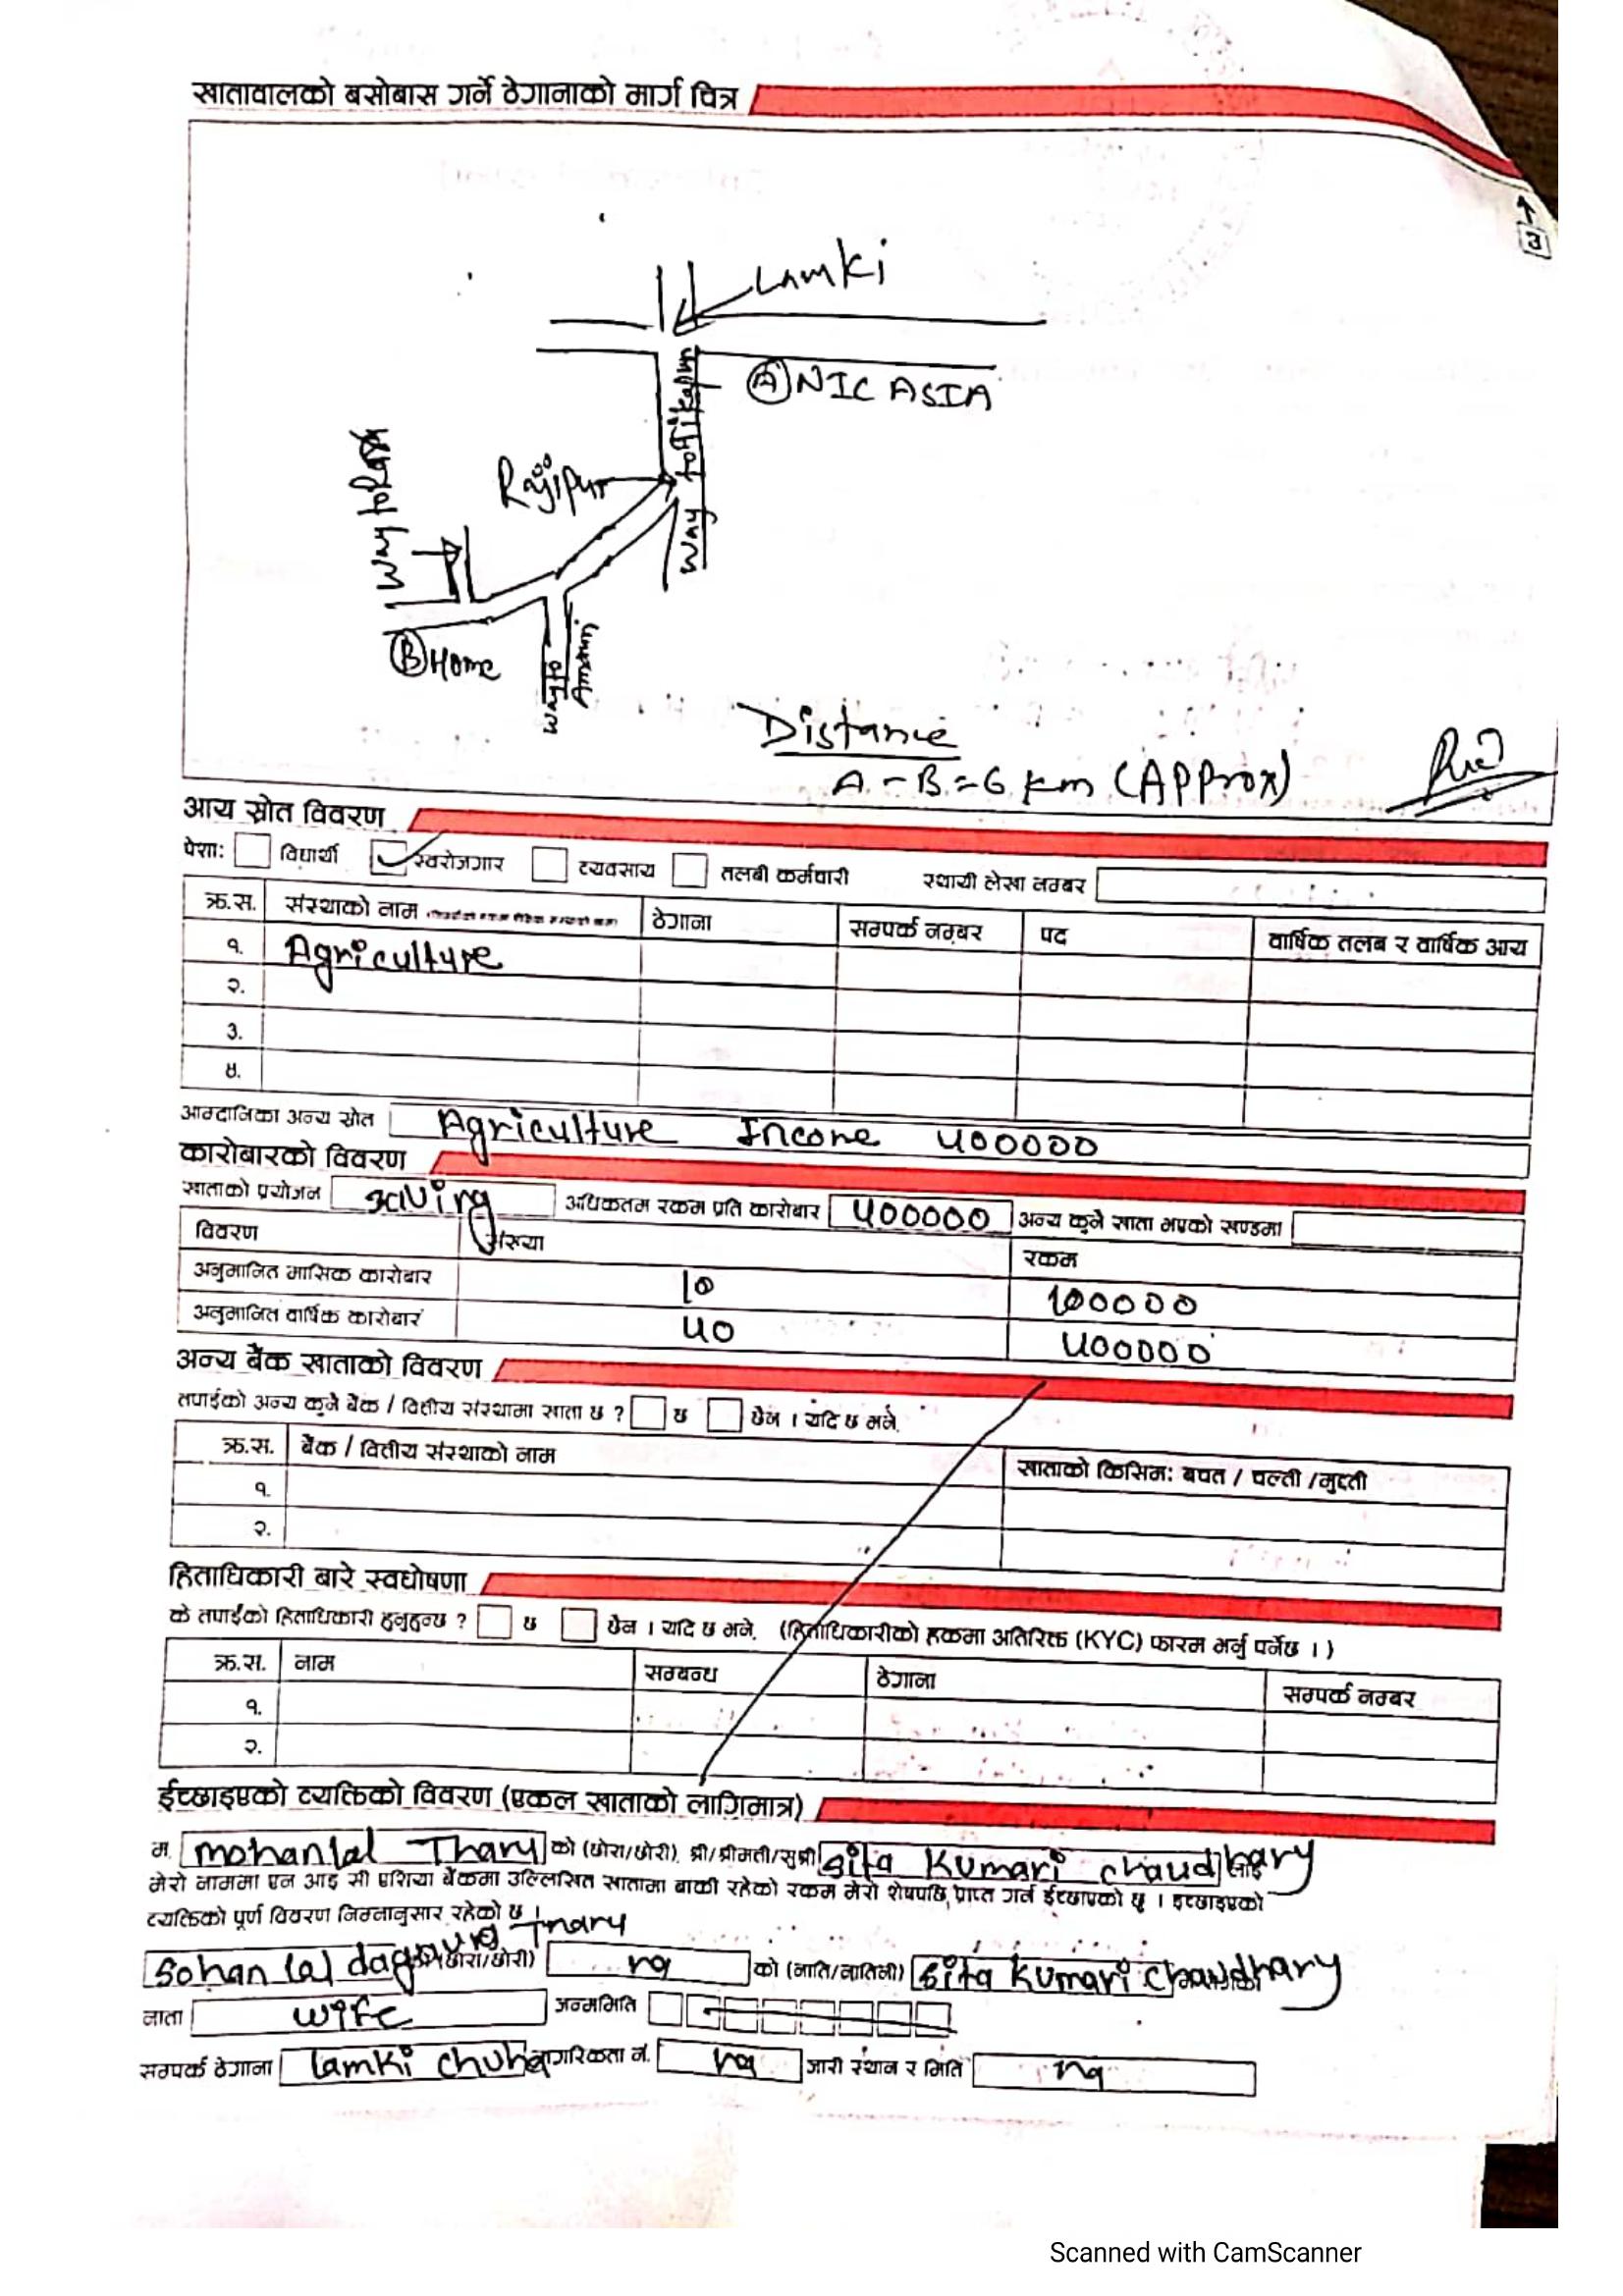 खातावालको बसोबास गर्ने ठेगानाको मार्ग चित्र
3
Lamki
Ⓐ NIC ASIA
Rajipur
Way to
way
Ⓑ Home
way to
Amauri
Distance
A - B = 6 km (APProx)
आय स्रोत विवरण
पेशा: विद्यार्थी स्वरोजगार व्यवसाय तलबी कर्मचारी स्थायी लेखा नम्बर
क्र.स. संस्थाको नाम ठेगाना सम्पर्क नम्बर पद वार्षिक तलब र वार्षिक आय
१. Agriculture
२.
३.
४.
आम्दानिका अन्य स्रोत Agriculture Income ५०००००
कारोबारको विवरण
खाताको प्रयोजन saving अधिकतम रकम प्रति कारोबार ५००००० अन्य कुनै खाता भएको खण्डमा
विवरण संख्या रकम
अनुमानित मासिक कारोबार १० १०००००
अनुमानित वार्षिक कारोबार ५० ५०००००
अन्य बैंक खाताको विवरण
तपाईको अन्य कुनै बैंक / वित्तीय संस्थामा खाता छ ? छ छैन । यदि छ भने,
क्र.स. बैंक / वित्तीय संस्थाको नाम खाताको किसिम: बचत / चल्ती /मुद्दती
१.
२.
हिताधिकारी बारे स्वघोषणा
के तपाईंको हिताधिकारी हुनुहुन्छ ? छ छैन । यदि छ भने, (हिताधिकारीको हकमा अतिरिक्त (KYC) फारम भर्नु पर्नेछ । )
क्र.स. नाम सम्बन्ध ठेगाना सम्पर्क नम्बर
१.
२.
ईच्छाइएको व्यक्तिको विवरण (एकल खाताको लागिमात्र)
म, mohanlal Tharu को (छोरा/छोरी), श्री/श्रीमती/सुश्री sita Kumari chaudhary लाई
मेरो नाममा एन आइ सी एशिया बैंकमा उल्लिखित खातामा बाकी रहेको रकम मेरो शेषपछि प्राप्त गर्न ईच्छाएको छु । इच्छाइएको
व्यक्तिको पूर्ण विवरण निम्नानुसार रहेको छ ।
Sohan lal dagaura Tharu (छोरा/छोरी) na को (नाति/नातिनी) sita Kumari chaudhary
नाता wife जन्ममिति
सम्पर्क ठेगाना lamki chuha नागरिकता नं. na जारी स्थान र मिति na
Scanned with CamScanner